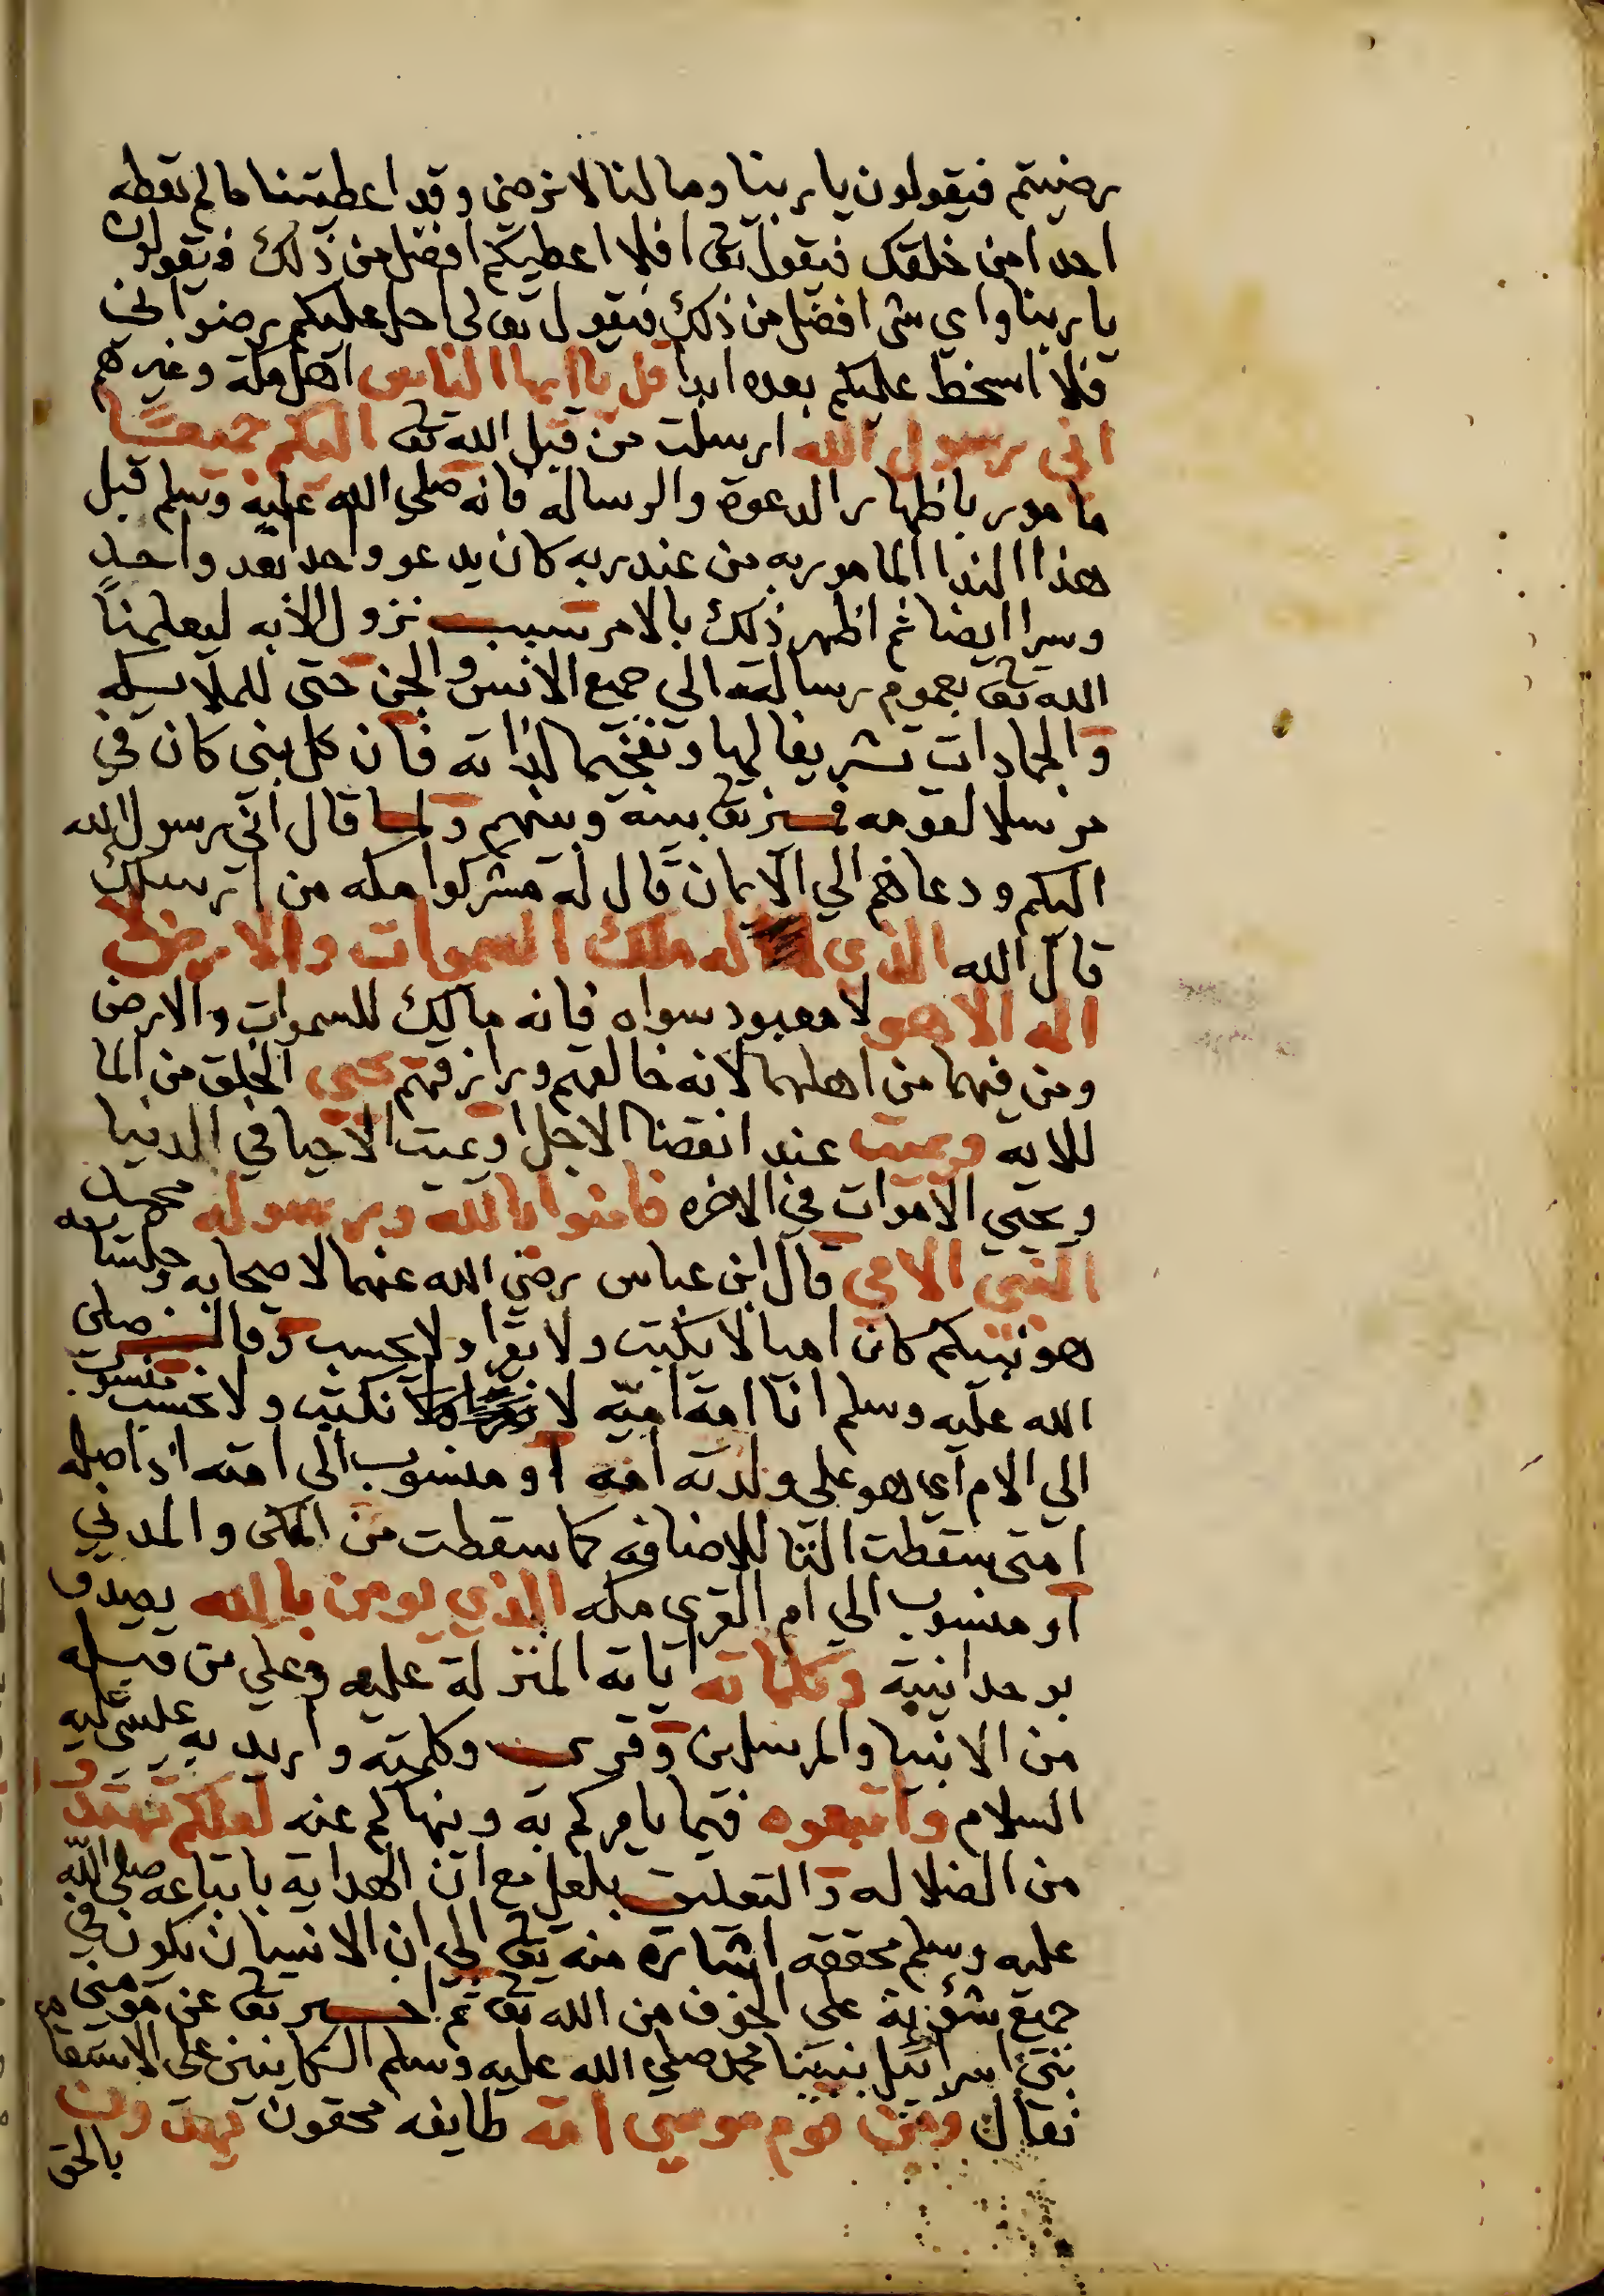 رضيتم فيقولون يا ربنا وما لنا لا نرضى وقد اعطيتنا ما لم تعطه
احدا من خلقك فيقول تعا افلا اعطيكم افضل من ذلك فيقولون
يا ربنا واي شي افضل من ذلك فيقول تعالى احل عليكم رضواني
فلا اسخط عليكم بعده ابدا قل يا ايها الناس اهل مكة وغيرهم
اني رسول الله ارسلت من قبل الله تعا اليكم جميعًا
مامور باظهار الدعوة والرسالة فانه صلي الله عليه وسلم قبل
هذا الندا المامور به من عند ربه كان يدعو واحدا بعد واحد
وسرا ايضا ثم اظهر ذلك بالامر بسبب نزول الايه ليعلمنا
الله تعا بعموم رسالته الي جميع الانس والجن حتى للملايكه
والجمادات تشريفا لها وتفخيما لذاته فان كل نبي كان في
مرسلا لقومه فميز تعا بينه وبينهم ولما قال اني رسول الله
اليكم ودعاهم الي الايمان قال له مشركوا مكه من ارسلك
قال الله الذي له ملك السموات والارض لا
اله الا هو لا معبود سواه فانه مالك للسموات والارض
ومن فيهما من اهلهما لانه خالقهم ورازقهم يحيي الخلق من الما
للايه ويميت عند انقضا الاجل او يميت الاحيا في الدنيا
ويحيي الاموات في الاخره فامنوا بالله ورسوله محمد
النبي الامي قال ابن عباس رضي الله عنهما لاصحابه وجلسايه
هو نبيكم كان اميا لا يكتب ولا يقرا ولا يحسب وقال صلى
الله عليه وسلم انا امة اميّه لا نكتب ولا نحسب منسوب
الي الام اي هو علي ولدته امه او منسوب الى امته اذ اصله
امتى سقطت التا للاضافه كما سقطت من المكى والمدني
او منسوب الي ام القرى مكه الذي يومن بالله يصدق
بوحدانيية وكلماته اياته المنزلة عليه وعلي من قبله
من الانبيا والمرسلين وقري وكلمته واريد به عيسى عليه
السلام واتبعوه فيما يامركم به وينهاكم عنه لعلكم تهتدو
من الضلاله والتعليق بلعل مع ان الهداية باتباعه صلى اللّه
عليه وسلم محققه اشارة منه تعا الي ان الانسان يكون في
جميع شؤنه علي الخوف من الله تعا ثم اخبر تعا عن مومني
بني اسرائيل بنبينا محمد صلي الله عليه وسلم الكاينين على الاستقامه
فقال ومن قوم موسي امة طايفه محقون يهدون
بالحق